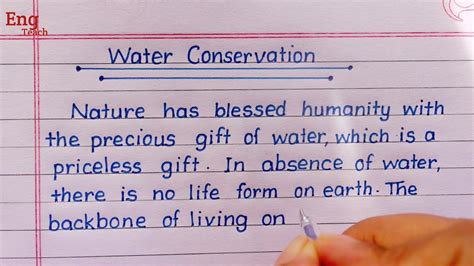 Eng
Teach
Water Conservation
Nature has blessed humanity with
the precious gift of water, which is a
priceless gift. In absence of water,
there is no life form on earth. The
backbone of living on